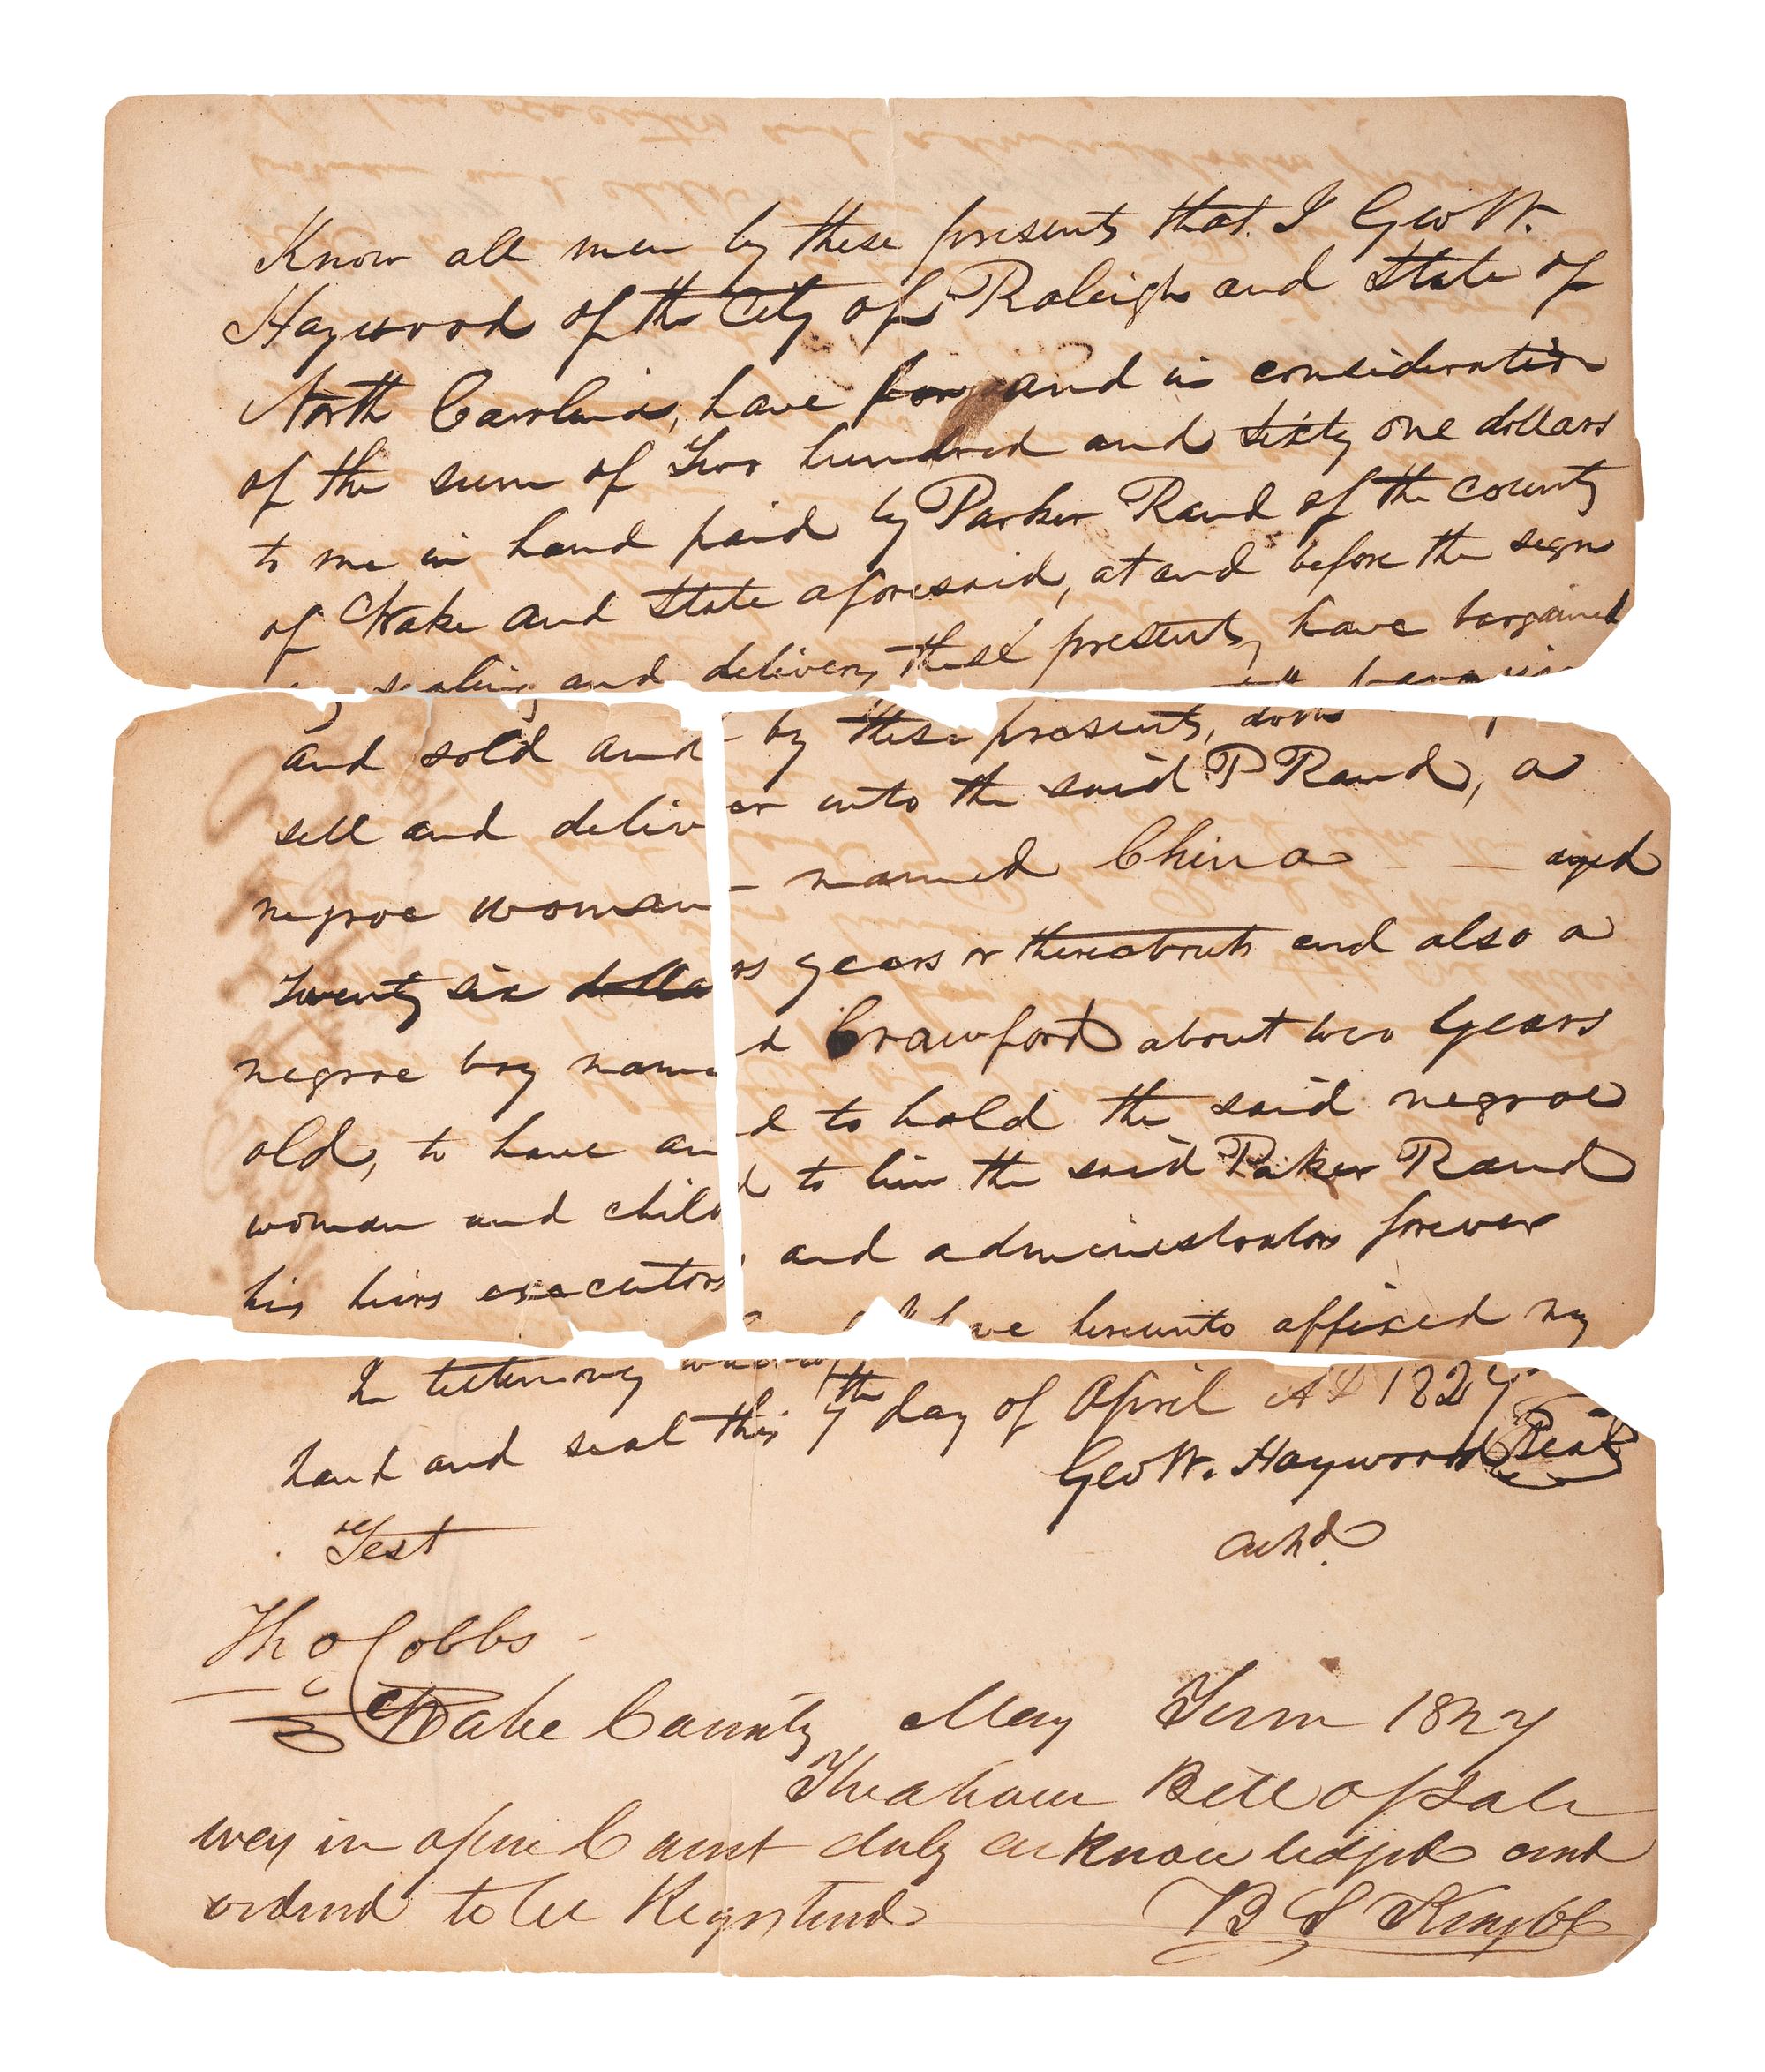 Know all men by these presents that I Geo W.
Haywood of the City of Raleigh and State of
North Carolina, have for and in consideration
of the sum of Two hundred and sixty one dollars
to me in hand paid by Parker Rand of the county
of Wake and State aforesaid, at and before the sign
sealing and delivery these presents, have bargained
and sold and by these presents, doth
sell and deliver unto the said P Rand, a
negroe woman - named China — aged
Twenty six dollars years or thereabouts and also a
negroe boy named Crawford about two years
old, to have and to hold the said negroe
woman and child to him the said Paker Rand
his heirs executors, and administrators forever
In testimony whereof I have hereunto affixed my
hand and seal this 7th day of April AD 1827
Geo W. Haywood Seal
Test
ackd.
Tho Cobbs
Wake County May Term 1827
The above Bill of Sale
was in open Court duly acknowledged and
ordered to be Registered
B S King Clk